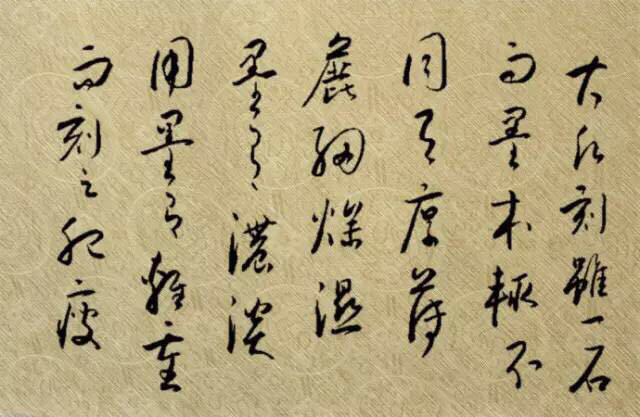 大刻雖一石
而墨本輒不
同有厚薄
麄細燥濕
墨有濃淡
用墨有輕重
而刻之肥瘦